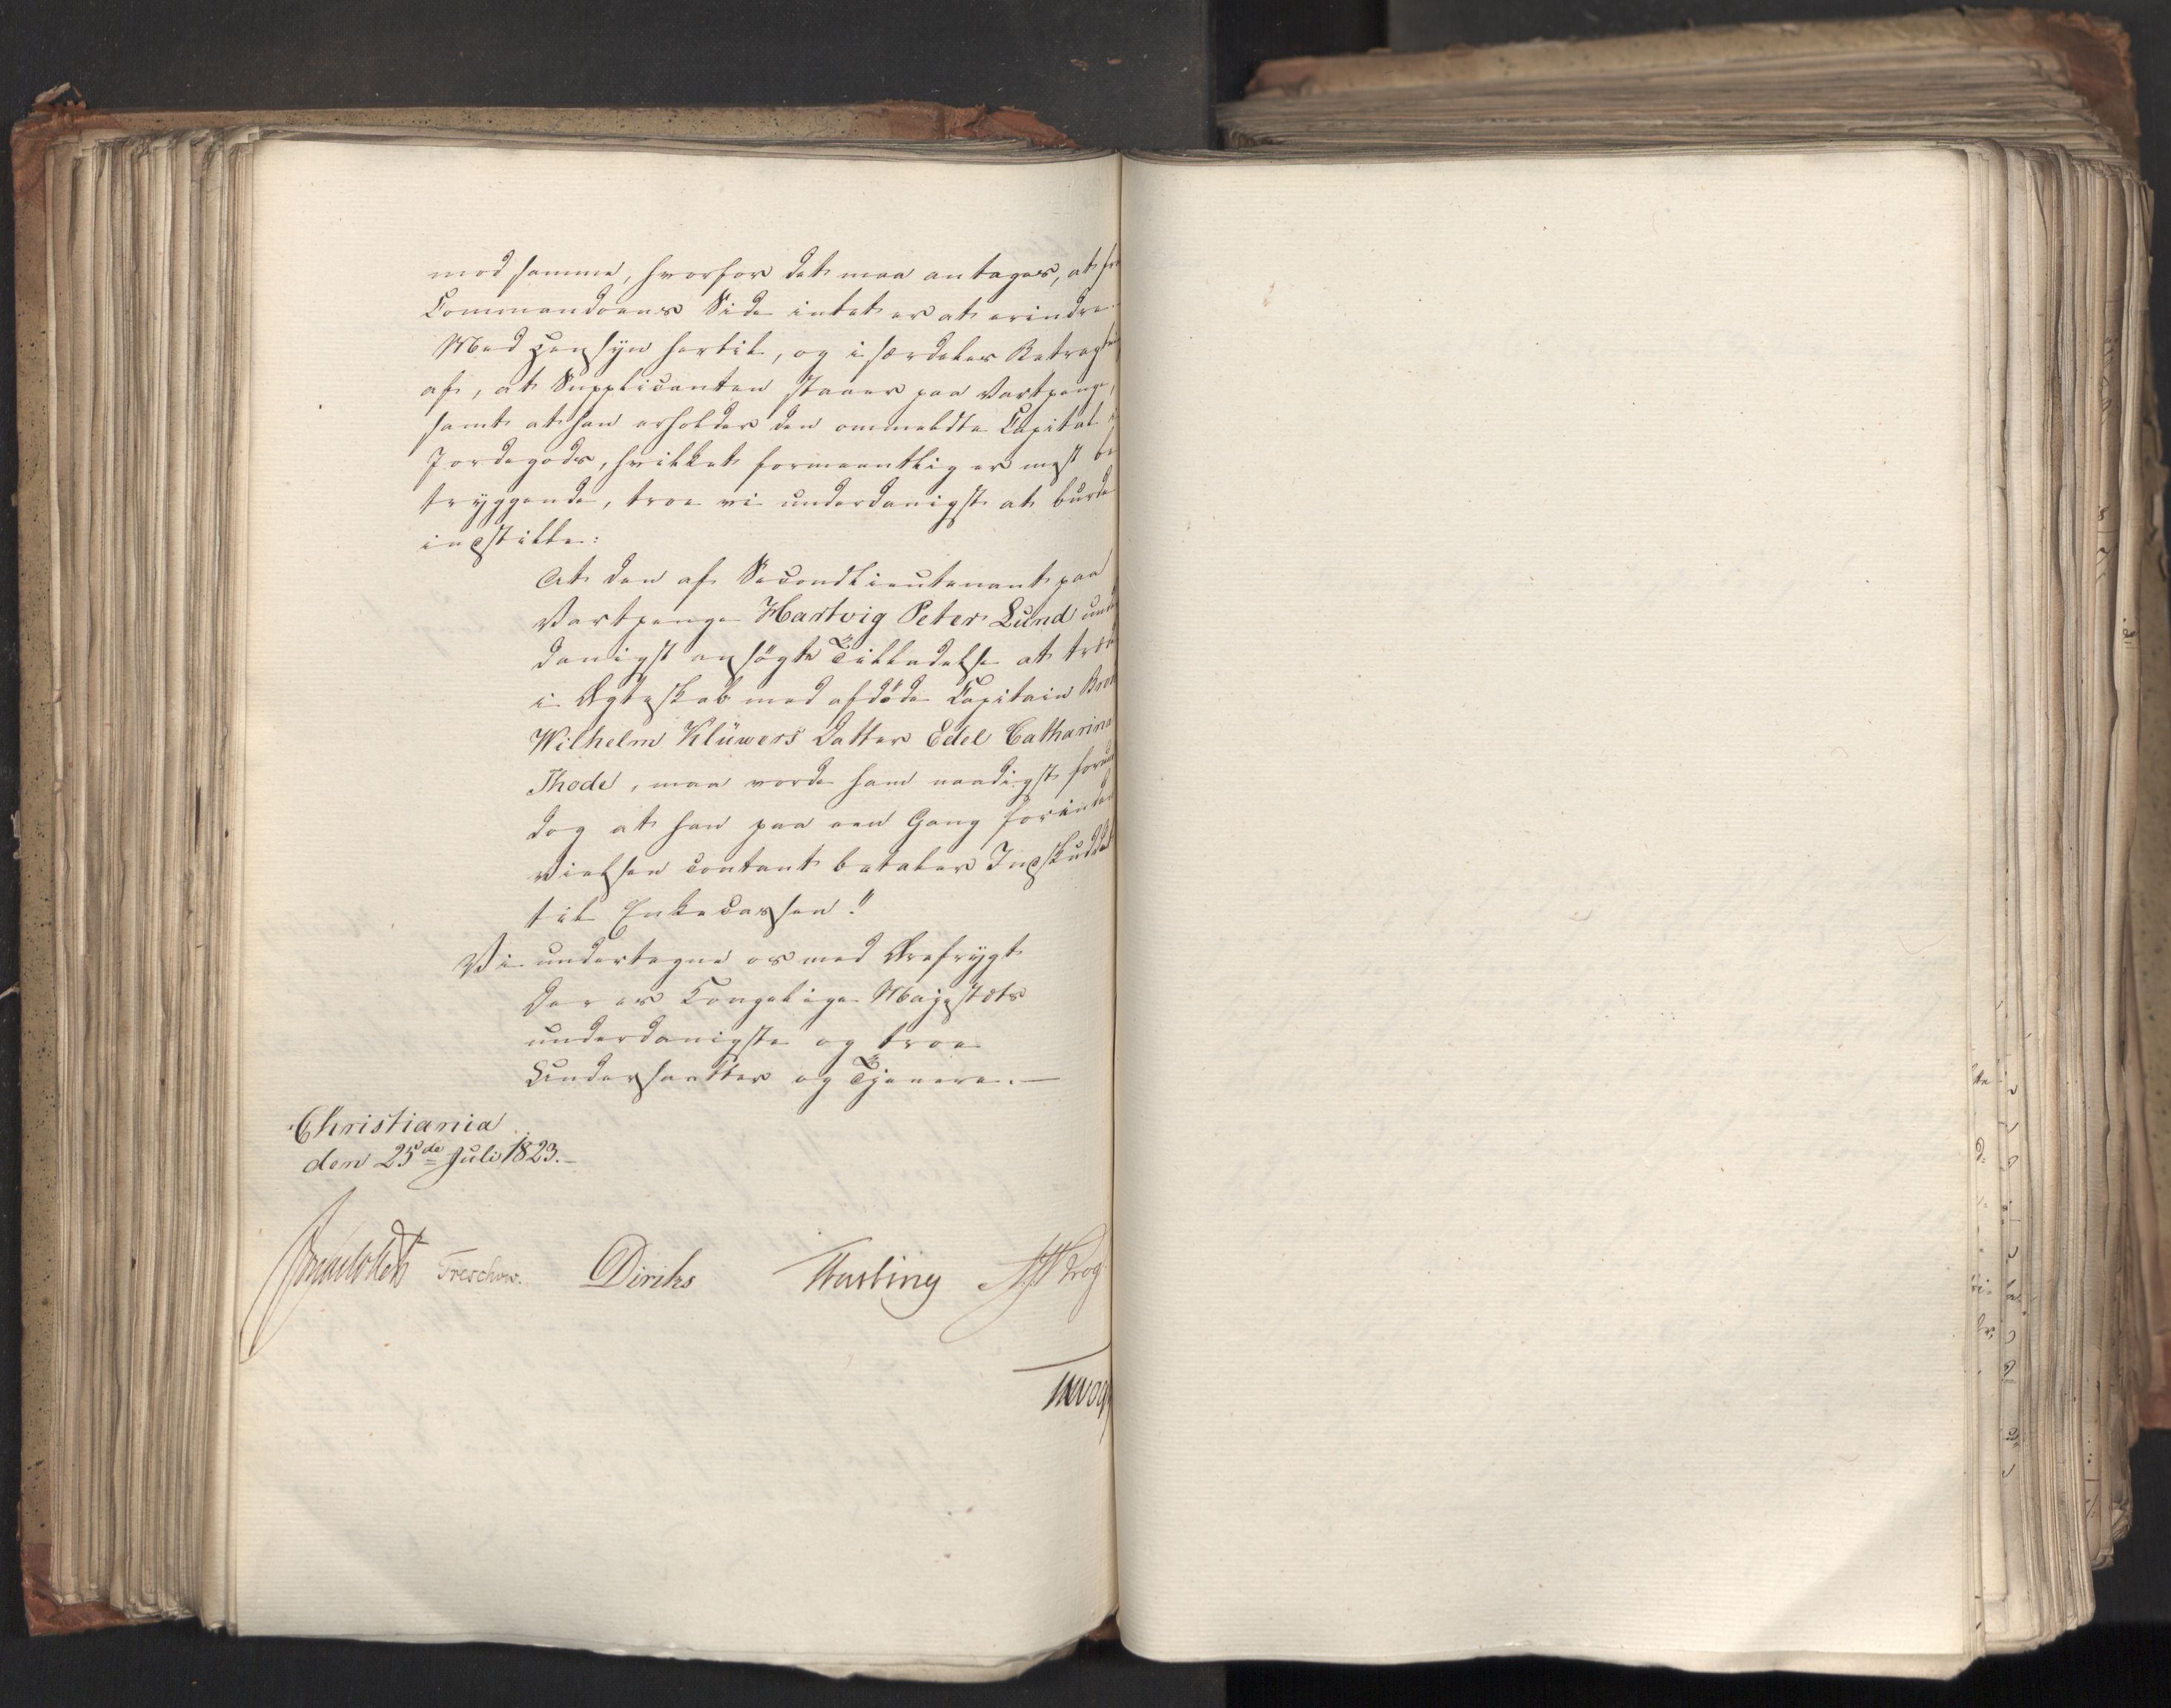 mod samme, hvorfor det maa antages, at fra
Commandoens Side intet er at erindre.
Med Hensyn hertil, og i særdeles Betragtni
af, at Supplicanten staaer paa Vartpenge,
samt at han erholder den ommeldte Capital i
Jordegods, hvilket formeentlig er mest be
tryggende, troe vi underdanigst at burde
indstille:
At den af Secondlieutenant paa
Vartpenge Hartvig Peter Lund und
danigst ansøgte Tilladelse at træd
i Ægteskab med afdøde Capitain
Wilhelm Klüwers Datter Edel Catharina
Thode, maa vorde ham naadigst forun
dog at han paa een Gang forinden
Vielsen contant betaler Indskuddet
til Enkecassen."
Vi undertegne os med Ærefrygt
Deres Kongelige Majestæts
underdanigste og troe
Undersaatter og Tjenere.—
Christiania
den 25de Juli 1823.—
Treschow. Diriks Fasting Krog